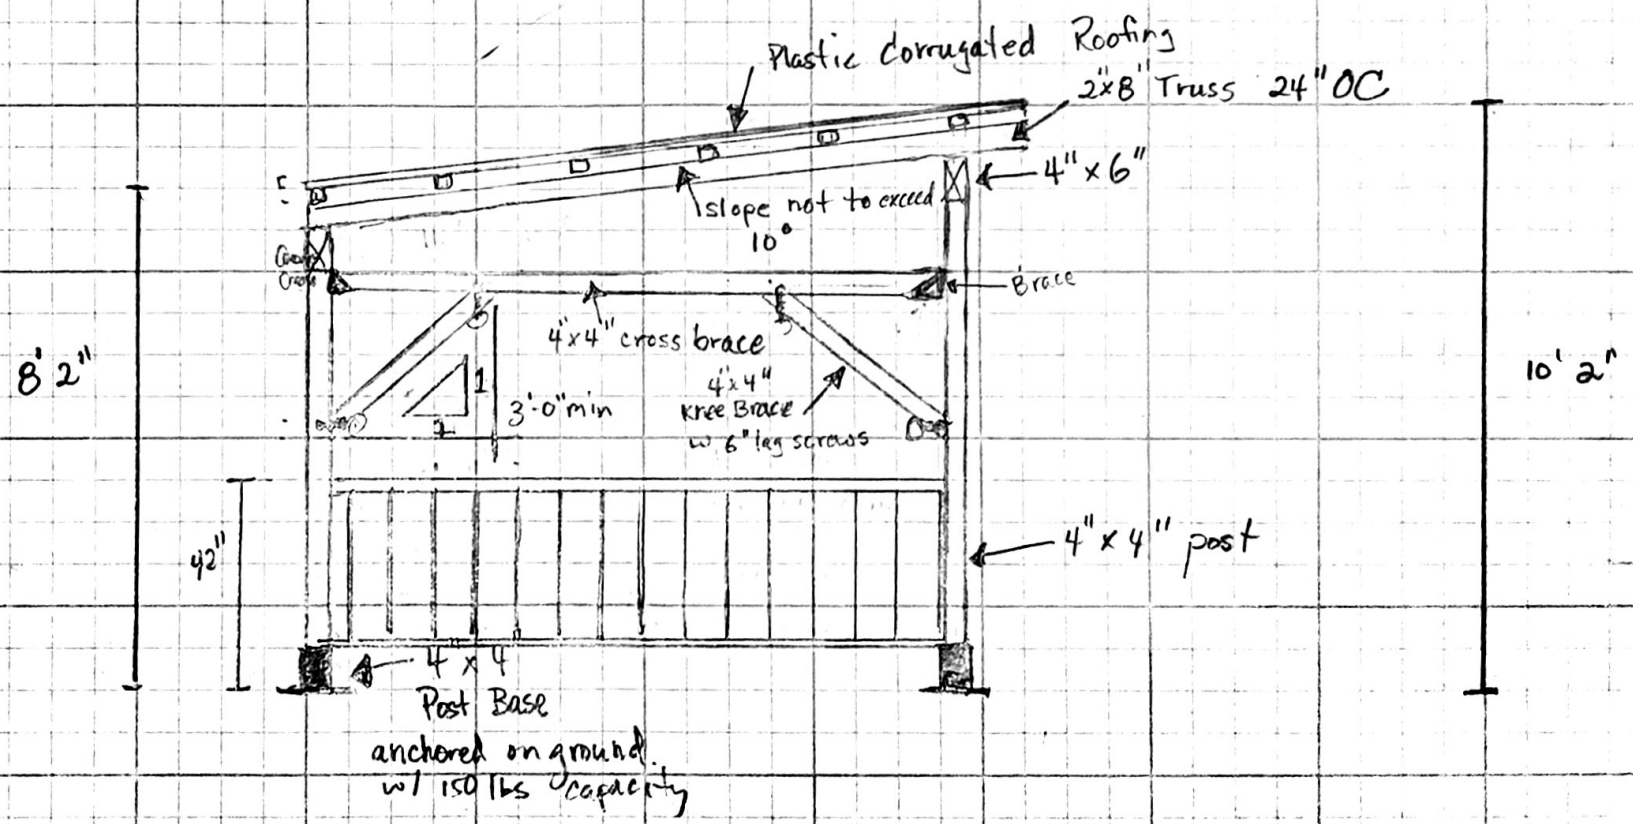 Plastic Corrugated Roofing
2"x8" Truss 24" OC
4" x 6"
slope not to exceed
10°
Brace
4"x4" cross brace
8' 2"
10' 2"
1
3'-0" min
4"x4"
Knee Brace
w 6" lag screws
42"
4" x 4" post
4" x 4
Post Base
anchored on ground.
w/ 150 lbs capacity